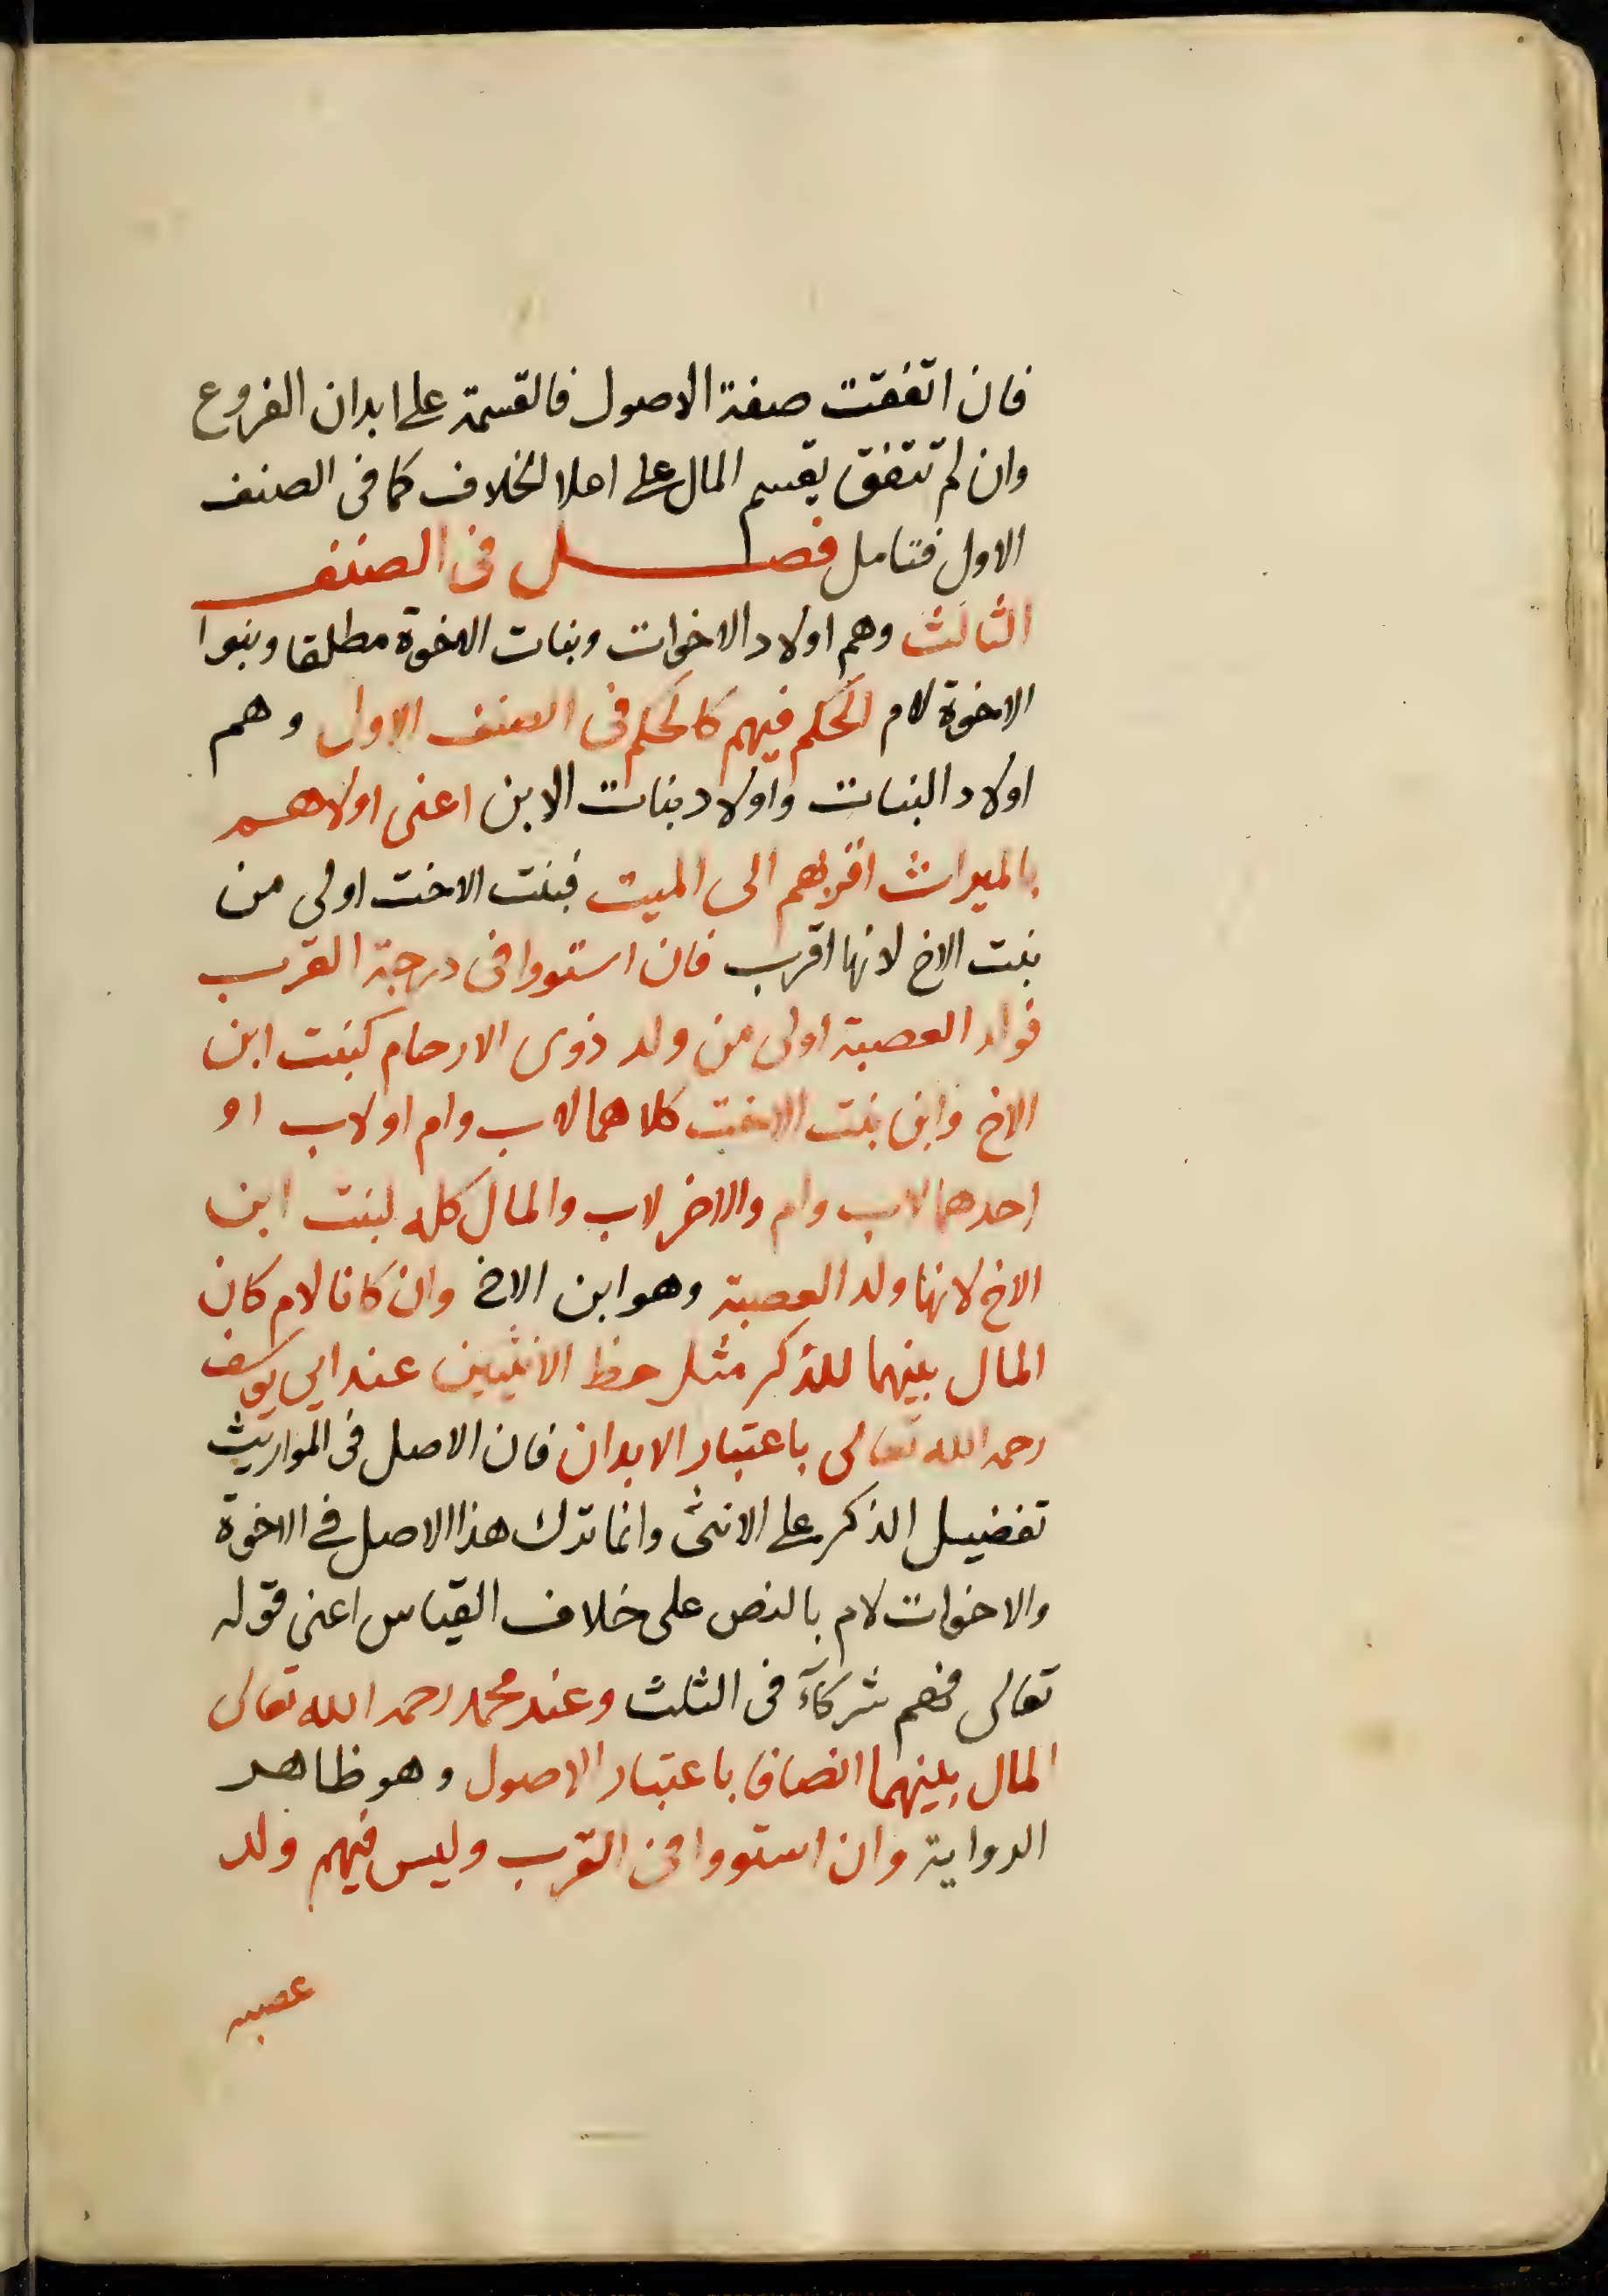 فان اتفقت صفة الاصول فالقسمة على ابدان الفروع
وان لم تتفق يقسم المال على اعلا الخلاف كما فى الصنف
الاول فتامل فصل فى الصنف
الثالث وهم اولاد الاخوات وبنات الاخوة مطلقا وبنوا
الاخوة لام الحكم فيهم كالحكم فى الصنف الاول وهم
اولاد البنات واولاد بنات الابن اعنى اولاهم
بالميراث اقربهم الى الميت فبنت الاخت اولى من
بنت الاخ لانها اقرب فان استووا فى درجة القرب
فولد العصبة اولى من ولد ذوى الارحام كبنت ابن
الاخ وابن بنت الاخت كلاهما لاب وام اولاب او
احدهما لاب وام والاخر لاب والمال كله لبنت ابن
الاخ لانها ولد العصبة وهو ابن الاخ وان كانا لام كان
المال بينهما للذكر مثل حظ الانثيين عند ابي يوسف
رحمه الله تعالى باعتبار الابدان فان الاصل فى المواريث
تفضيل الذكر على الانثى وانما ترك هذا الاصل في الاخوة
والاخوات لام بالنص على خلاف القياس اعنى قوله
تعالى فهم شركآء فى الثلث وعند محمد رحمه الله تعالى
المال بينهما انصافا باعتبار الاصول وهو ظاهر
الرواية وان استووا فى القرب وليس فيهم ولد
عصبه